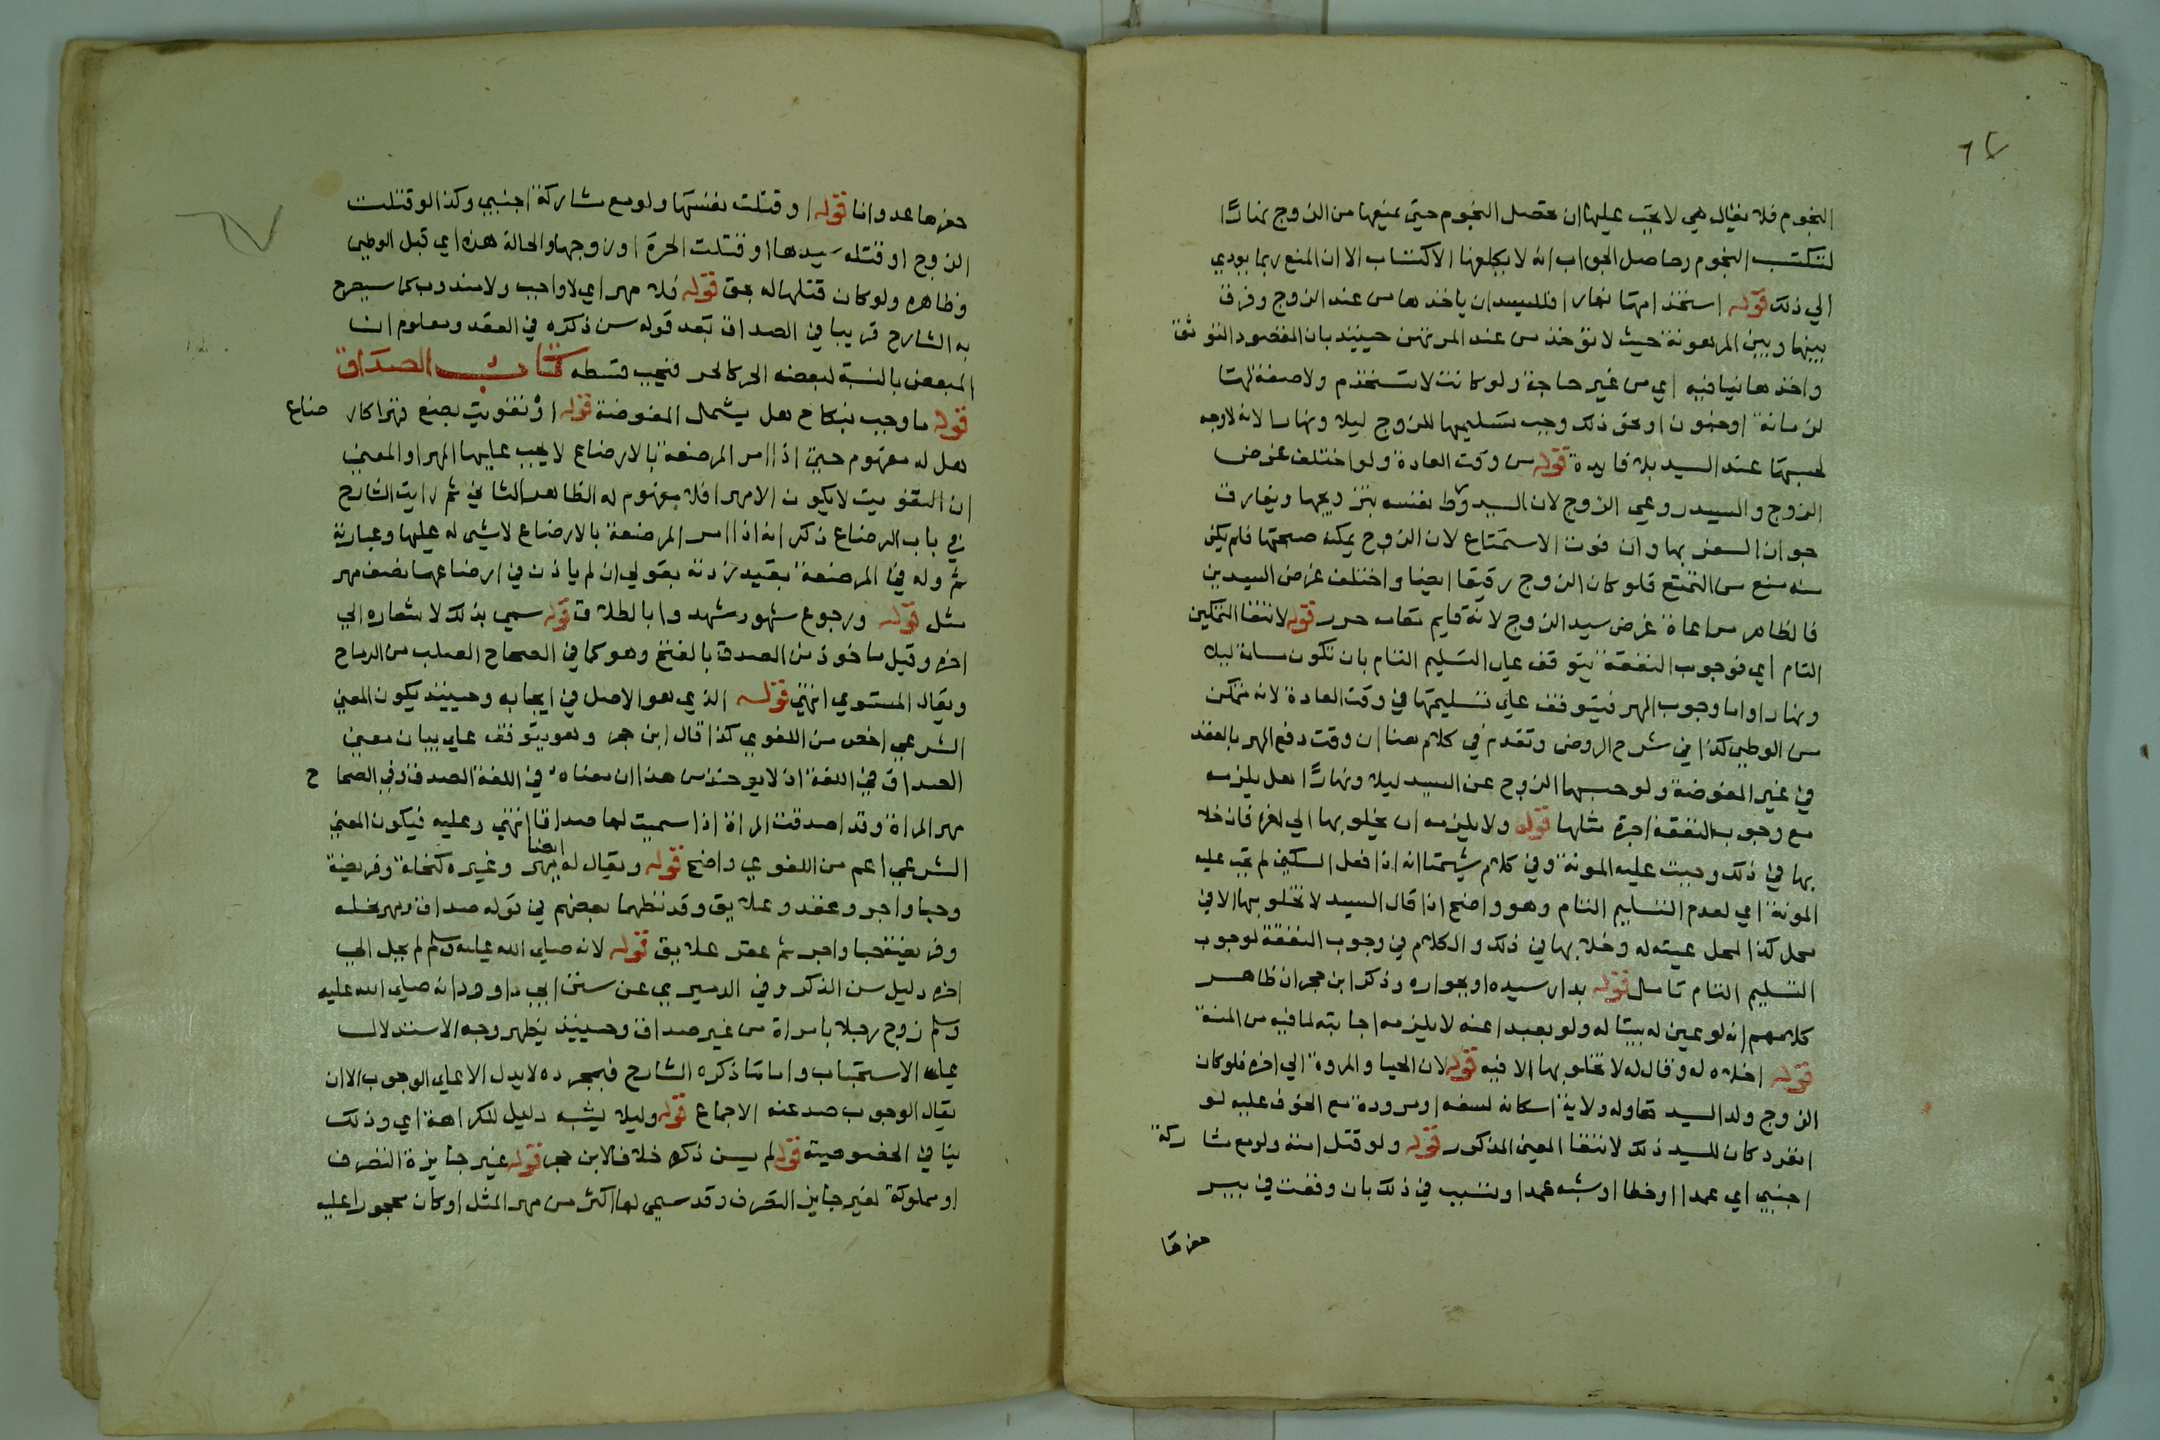 النجوم فلا يقال هي لا يجب عليها ان تحصل النجوم حتى يمنعها من الزوج نهارًا
لتكتسب النجوم وحاصل الجواب انه لا يكلفها الاكتساب الا ان المنع ربما يودي
الي ذلك قوله استخذامها نهارا فللسيد ان ياخذها من عند الزوج وفرق
بينها وبين المرهونة حيث لا تؤخذ من عند المرتهن حينيذ بان المقصود التوثق
واخذها ينافيه اي من غير حاجة ولو كانت لا تستخذم ولا صنعة لها
لزمانة او جنون او نحو ذلك وجب تسليمها للزوج ليلا ونهارا لانه لا وجه
لحبسها عند السيد بلا فايدة قوله من وقت العادة ولو اختلف غرض
الزوج والسيد روعي الزوج لان السيد ورط نفسه بتزويجها ويفارق
جواز السفر بها وان فوت الاستمتاع لان الزوج يمكنه صحبتها فلم يكن
منه منع من التمتع فلو كان الزوج رقيقا ايضا واختلف غرض السيدين
فالظاهر مراعاة غرض سيد الزوج لانه قايم مقامه حرر قوله لانتفا التمكين
التام اي فوجوب النفقة يتوقف علي التسليم التام بان تكون مسلمة ليلا
ونهارا واما وجوب المهر فيتوقف علي تسليمها في وقت العادة لانه متمكن
من الوطي كذا في شرح الروض وتقدم في كلام هنا ان وقت دفع المهر بالعقد
في غير المفوضة ولو حبسها الزوج عن السيد ليلا ونهارًا هل يلزمه
مع وجوب النفقة اجرة مثلها قوله ولا يلزمه ان يخلو بها الي اخره فان خلا
بها في ذلك وجبت عليه المونة وفي كلام شيخنا انه اذا فعل السكني لم تجب عليه
المونة اي لعدم التسليم التام وهو واضح اذا قال السيد لا تخلو بها الا في
محل كذا المحل عينه له وخلا بها في ذلك والكلام في وجوب النفقة لوجوب
التسليم التام تامل قوله بدار سيده او بجواره وذكر ابن حجر ان ظاهر
كلامهم انه لو عين له بيتا له ولو بعيدا عنه لا يلزمه اجابته لما فيه من المنة
قوله اخلاه له وقال له لا تخلو بها الا فيه قوله لان الحيا والمروة الي اخره فلو كان
الزوج ولد السيد وله ولاية اسكانه لسفه او مرودة مع الخوف عليه لو
انفرد كان للسيد ذلك لانتفا المعني المذكور قوله ولو قتل امته ولو مع مشاركة
اجنبي اي عمدا او خطا او شبه عمد او تسبب في ذلك بان وقعت في بير
حفرها
حفرها عدوانا قوله او قتلت نفسها ولو مع مشاركة اجنبي وكذا لو قتلت
الزوج او قتله سيدها او قتلت الحرة او زوجها والحالة هذه اي قبل الوطي
وظاهره ولو كان قتلها له بحق قوله فلا مهر اي لا واجب ولا مندوب كما سيصرح
به الشارح قريبا في الصداق بعد قوله سن ذكره في العقد ومعلوم ان
المبعض بالنسبة لبعضه الحر كالحر فيجب قسطه كتاب الصداق
قوله ما وجب بنكاح هل يشمل المفوضة قوله او تفويت بضع قهرا كارضاع
هل له مفهوم حتي اذا امر المرضعة بالارضاع لا يجب عليها المهر او المعني
ان التفويت لا يكون الا مهرا فلا مفهوم له الظاهر الثاني ثم رايت الشارح
في باب الرضاع ذكر انه اذا امر المرضعة بالارضاع لا شي له عليها وعبارته
ثم وله في المرضعة بقيد زدته بقولي ان لم ياذن في ارضاعها نصف مهر
مثل قوله ورجوع شهود شهدوا بالطلاق قوله سمي بذلك لاشعاره الي
اخره وقيل ماخوذ من الصدق بالفتح وهو كما في الصحاح الصلب من الرماح
ويقال المستوي انتهي قوله الذي هو الاصل في ايجابه وحينيذ يكون المعني
الشرعي اخص من اللغوي كذا قال ابن حجر وهو يتوقف علي بيان معني
الصداق في اللغة اذ لا يوخذ من هذا ان معناه في اللغة الصدق وفي الصحاح
مهر المراة وقد اصدقت المراة اذا سميت لها صداقا انتهي وعليه فيكون المعني
الشرعي اعم من اللغوي واضح قوله ويقال له ايضا مهر وغيره كنحلة وفريضة
وحبا واجر وعقد وعلايق وقد نظمها بعضهم في قوله صداق ومهر نحلة
وفريضة حبا واجر ثم عقر علايق قوله لانه صلي الله عليه وسلم لم يخل الي
اخره دليل سن الذكر وفي الدميري عن سنن ابي داوود انه صلي الله عليه
وسلم زوج رجلا بامراة من غير صداق وحينيذ يظهر وجه الاستدلال
علي الاستحباب واما ما ذكره الشارح فبمجرده لا يدل الا علي الوجوب الا ان
يقال الوجوب صد عنه الاجماع قوله وليلا يشبه دليل للكراهة اي وذلك
ينافي الخصوصية قوله لم يسن ذكره خلافا لابن حجر قوله غير جايزة التصرف
او مملوكة لغير جايز التصرف وقد سمي لها اكثر من مهر المثل او كان محجورا عليه